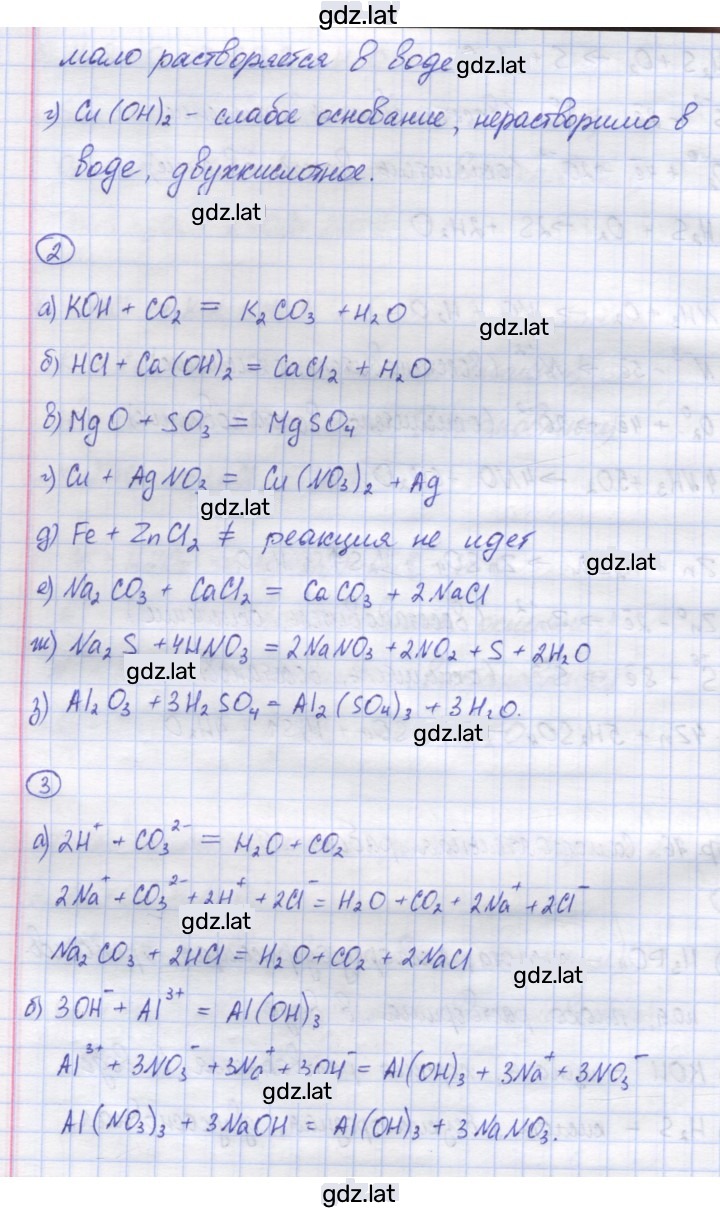 gdz.lat
мало растворяется в воде gdz.lat
г) Cu(OH)₂ - слабое основание, нерастворимо в
воде, двухкислотное.
gdz.lat
2
а) KOH + CO₂ = K₂CO₃ + H₂O
gdz.lat
б) HCl + Ca(OH)₂ = CaCl₂ + H₂O
в) MgO + SO₃ = MgSO₄
г) Cu + AgNO₂ = Cu(NO₃)₂ + Ag
gdz.lat
д) Fe + ZnCl₂ ≠ реакция не идет
gdz.lat
е) Na₂CO₃ + CaCl₂ = CaCO₃ + 2NaCl
ж) Na₂S + 4HNO₃ = 2NaNO₃ + 2NO₂ + S + 2H₂O
gdz.lat
з) Al₂O₃ + 3H₂SO₄ = Al₂(SO₄)₃ + 3H₂O.
gdz.lat
3
а) 2H⁺ + CO₃²⁻ = H₂O + CO₂
2Na⁺ + CO₃²⁻ + 2H⁺ + 2Cl⁻ = H₂O + CO₂ + 2Na⁺ + 2Cl⁻
gdz.lat
Na₂CO₃ + 2HCl = H₂O + CO₂ + 2NaCl
gdz.lat
б) 3OH⁻ + Al³⁺ = Al(OH)₃
Al³⁺ + 3NO₃⁻ + 3Na⁺ + 3OH⁻ = Al(OH)₃ + 3Na⁺ + 3NO₃⁻
gdz.lat
Al(NO₃)₃ + 3NaOH = Al(OH)₃ + 3NaNO₃.
gdz.lat